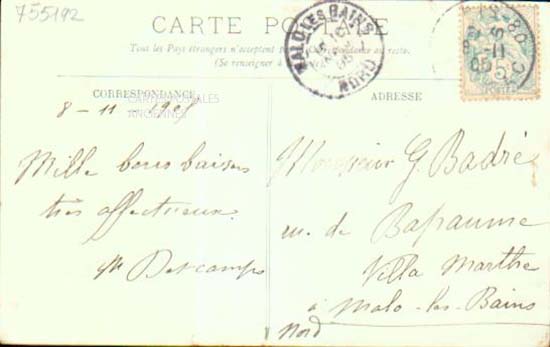 755192
CARTE POSTALE
Tout les Pays étrangers n'acceptent pas la Correspondance au recto.
(Se renseigner à
MALO-LES-BAINS
NORD
5
POSTES
CORRESPONDANCE
ADRESSE
CARTES POSTALES
ANCIENNES
8-11-1905
Mille bons baisers
très affectueux.
M Descamps
Monsieur G. Badré
r. de Bapaume
Villa Marthe
à Malo-les-Bains
Nord